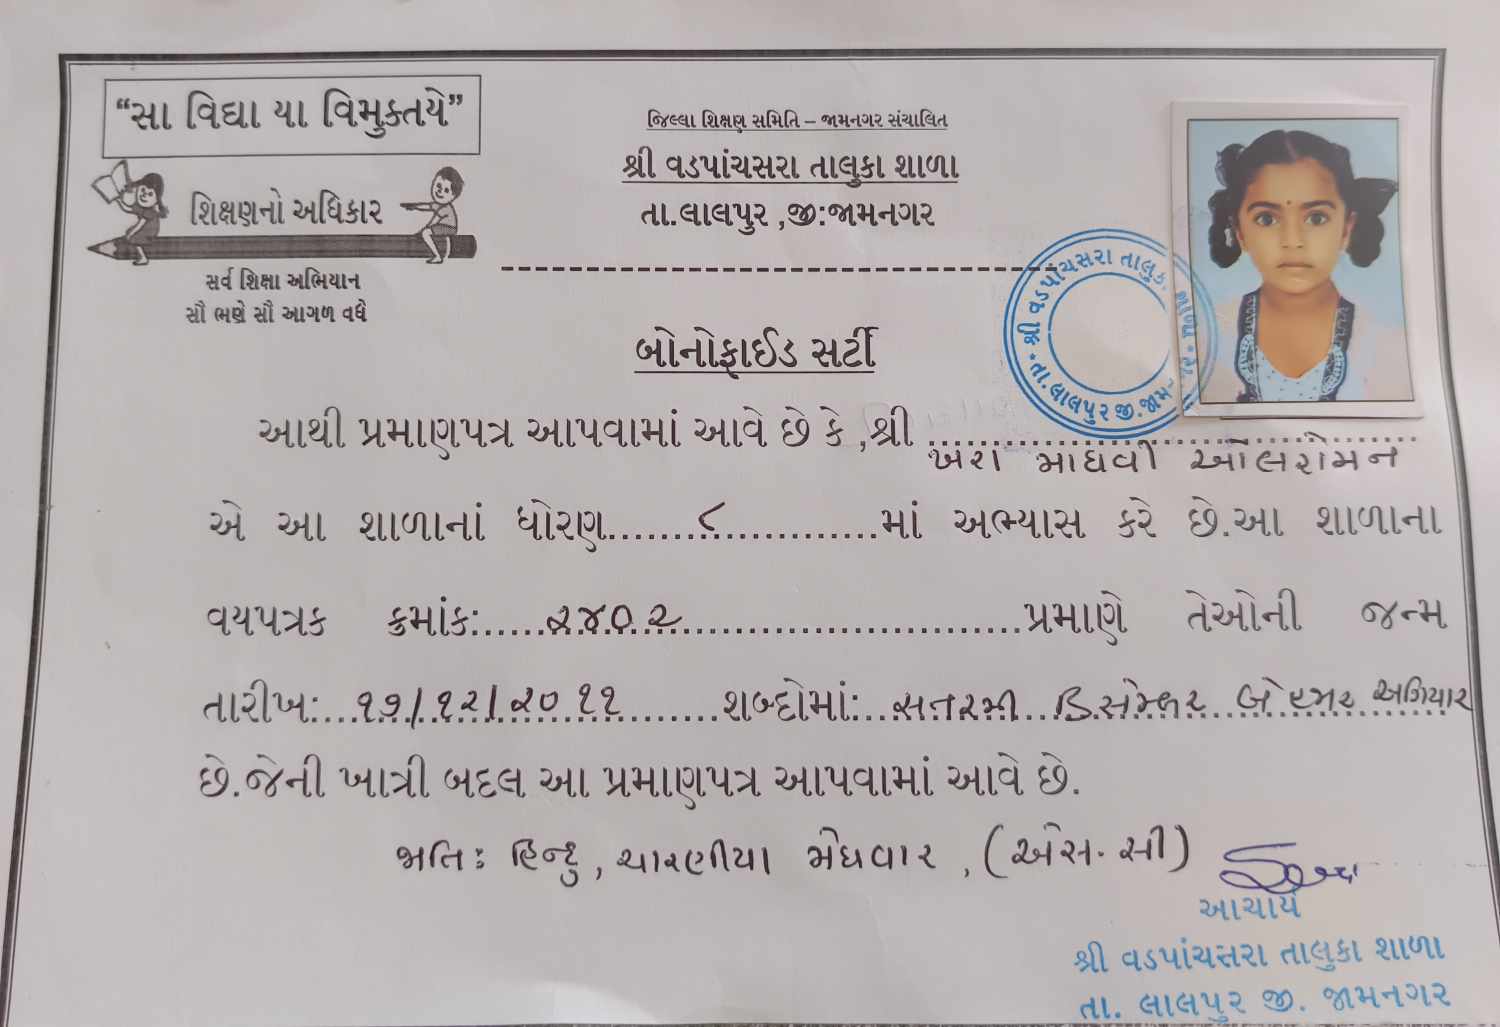 “સા વિદ્યા યા વિમુક્તયે”
શિક્ષણનો અધિકાર
સર્વ શિક્ષા અભિયાન
સૌ ભણે સૌ આગળ વધે
જિલ્લા શિક્ષણ સમિતિ – જામનગર સંચાલિત
શ્રી વડપાંચસરા તાલુકા શાળા
તા.લાલપુર ,જી:જામનગર
શ્રી વડપાંચસરા તાલુક શાળા
તા.લાલપુર જી.જામ
બોનોફાઈડ સર્ટી
આથી પ્રમાણપત્ર આપવામાં આવે છે કે ,શ્રી ખરા માધવી ઓલરોમન
એ આ શાળાનાં ધોરણ......૮......માં અભ્યાસ કરે છે.આ શાળાના
વયપત્રક ક્રમાંક:......૨૪૦૨......પ્રમાણે તેઓની જન્મ
તારીખ:....૧૭/૧૨/૨૦૧૧......શબ્દોમાં:...સતરમી ડિસેમ્બર બે હજાર અગિયાર
છે.જેની ખાત્રી બદલ આ પ્રમાણપત્ર આપવામાં આવે છે.
જાતિ: હિન્દુ, ચારણીયા મેઘવાર, (એસ.સી)
આચાર્ય
શ્રી વડપાંચસરા તાલુકા શાળા
તા. લાલપુર જી. જામનગર